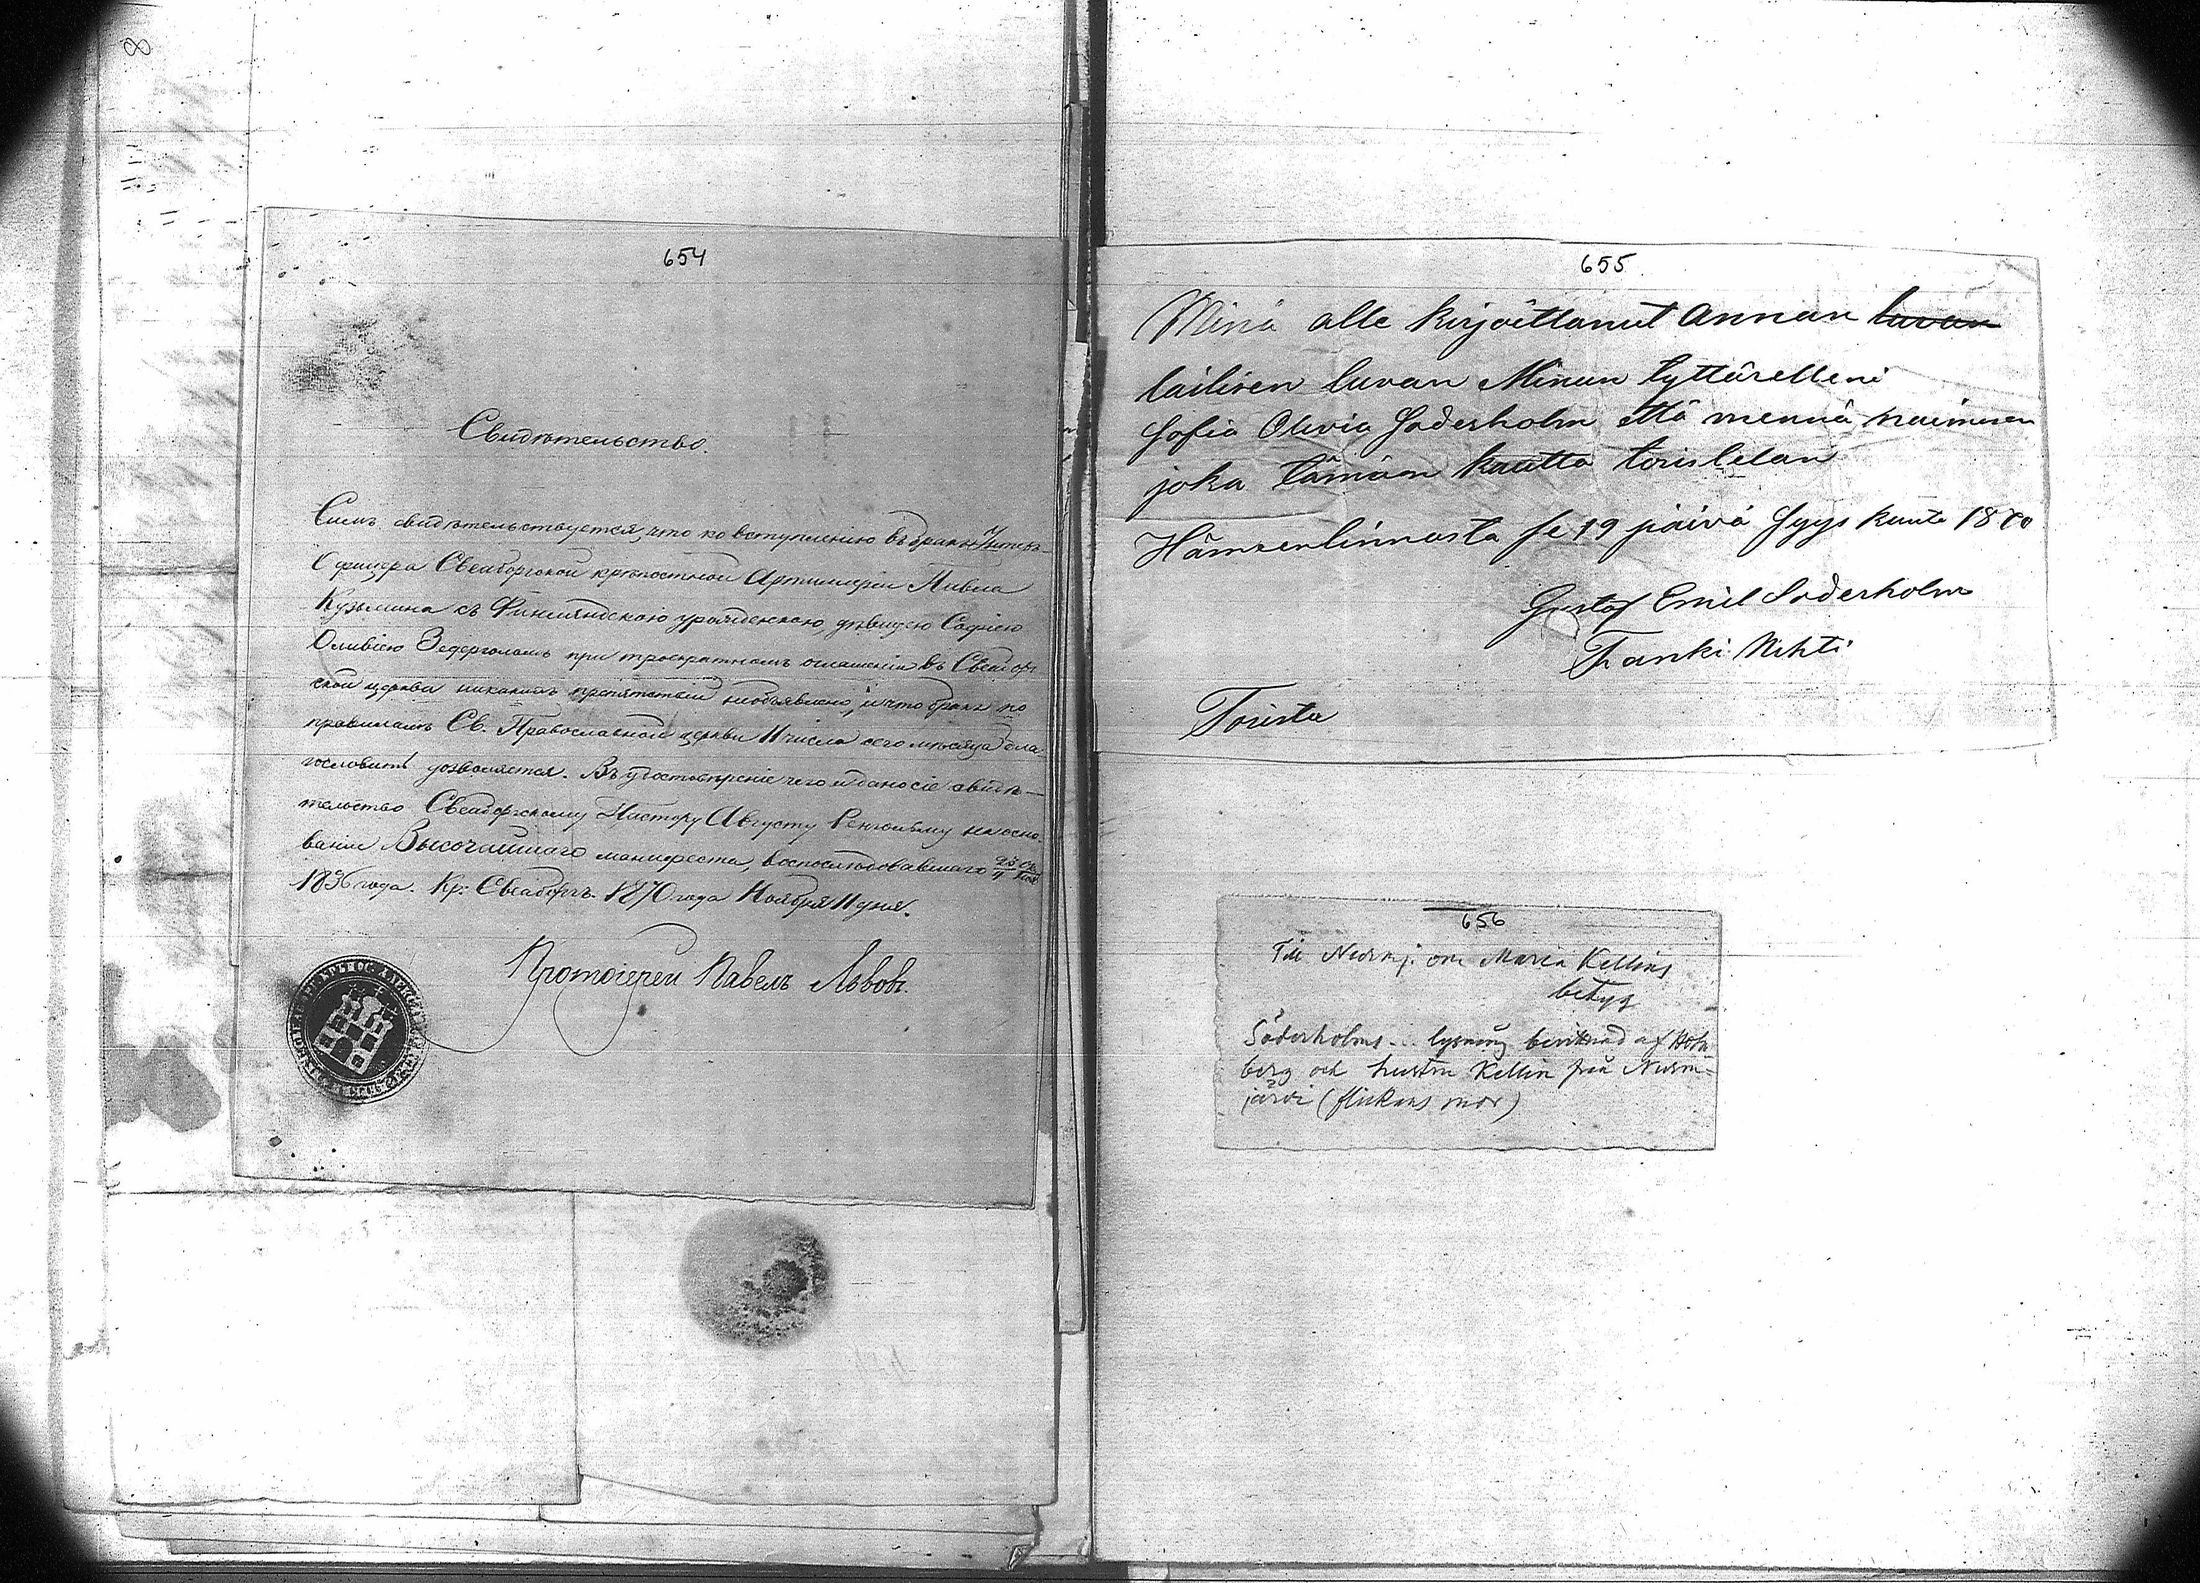 8
654
Свидѣтельство.
Симъ свидѣтельствуется, что ко вступленію въ бракъ Унтеръ-
Офицера Свеаборгской крѣпостной Артиллеріи Павла
Кузьмина съ Финляндскою урожденкою, дѣвицею Софіею
Оливіею Зедергольмъ при троекратномъ оглашеніи въ Свеаборг
ской церкви никакихъ препятствій необъявлено, и что бракъ по
правиламъ Св. Православной церкви 11 числа сего мѣсяца бла-
гословить дозволяется. Въ удостовѣреніе чего и дано сіе свидѣ-
тельство Свеаборгскому Пастору Августу на осно-
ваніи Высочайшаго манифеста, воспослѣдовавшаго
1836 года. Кр: Свеаборгъ. 1870 года Ноября 11 дня.
Протоіерей Павелъ Львовъ.
655
Minä alle kirjoittanut annan luvan
lailisen luvan Minun tyttärelleni
Sofia Olivia Soderholm että mennä naimisen
joka tämän kautta toristetan
Hämenlinnasta se 19 päivä Syys kuuta 1870
Gustaf Emil Soderholm
Fanki Nihti
Torista
656
Till Nurmj. om Maria Kellins
betyg
Söderholms lysning bevittnad af Holm
berg och hustru Kellin från Nurm-
järvi (flickans mor)